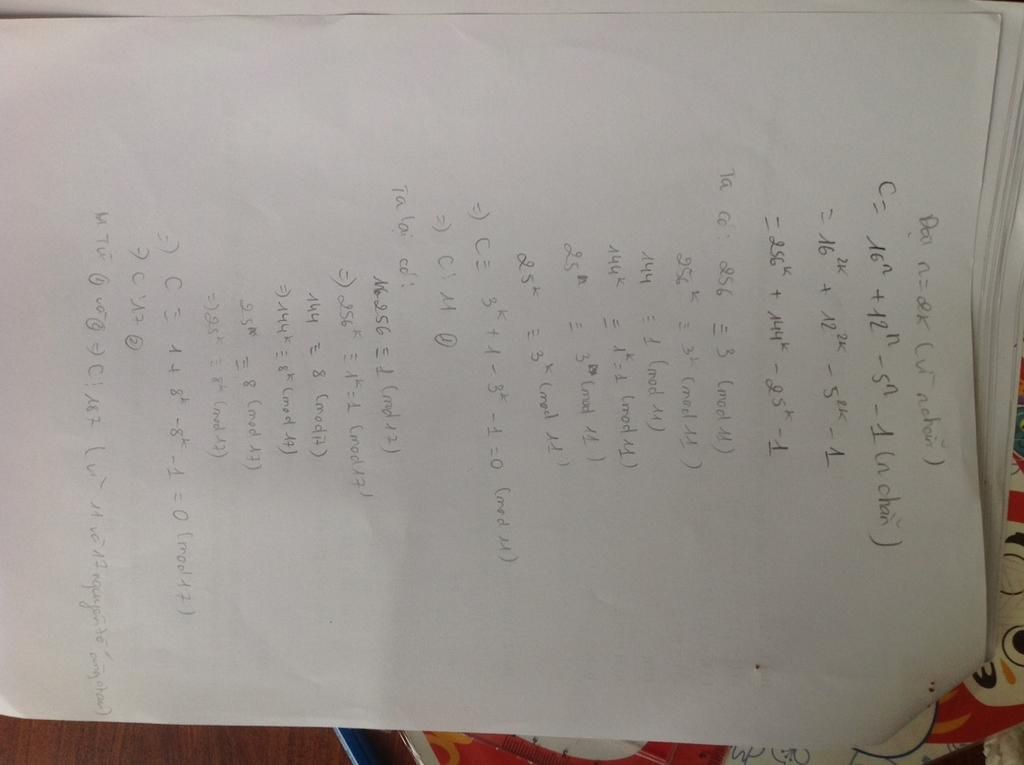 Đặt n = 2k (vì n chẵn)
C = 16ⁿ + 12ⁿ - 5ⁿ - 1 (n chẵn)
= 16²ᵏ + 12²ᵏ - 5²ᵏ - 1
= 256ᵏ + 144ᵏ - 25ᵏ - 1
Ta có: 256 ≡ 3 (mod 11)
256ᵏ ≡ 3ᵏ (mod 11)
144 ≡ 1 (mod 11)
144ᵏ ≡ 1ᵏ = 1 (mod 11)
25 ≡ 3 (mod 11)
25ᵏ ≡ 3ᵏ (mod 11)
=) C ≡ 3ᵏ + 1 - 3ᵏ - 1 = 0 (mod 11)
=) C ⋮ 11 ①
Ta lại có:
256 ≡ 1 (mod 17)
=) 256ᵏ ≡ 1ᵏ = 1 (mod 17)
144 ≡ 8 (mod 17)
=) 144ᵏ ≡ 8ᵏ (mod 17)
25 ≡ 8 (mod 17)
=) 25ᵏ ≡ 8ᵏ (mod 17)
=) C ≡ 1 + 8ᵏ - 8ᵏ - 1 = 0 (mod 17)
=) C ⋮ 17 ②
Từ ① và ② =) C ⋮ 187 (vì 11 và 17 nguyên tố cùng nhau)